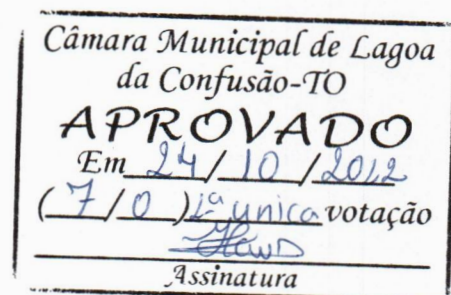 Câmara Municipal de Lagoa
da Confusão-TO
APROVADO
Em 24/ 10 /2012
( 7/ 0 ) única votação
Assinatura